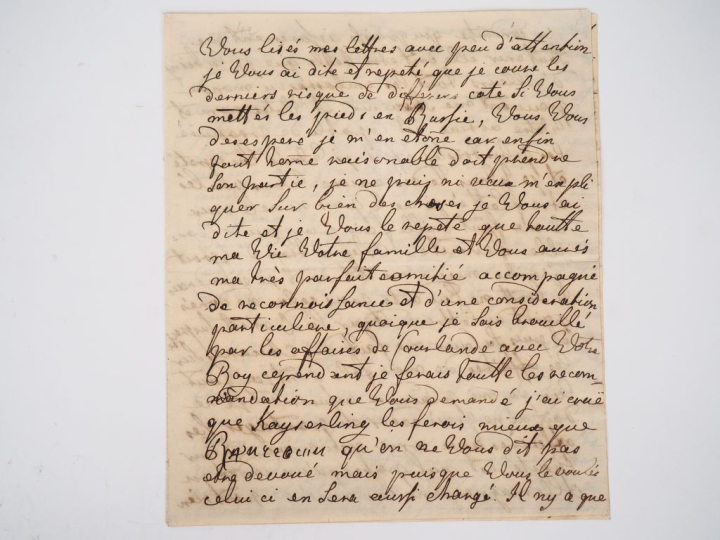 Vous lisés mes lettres avec peu d'attention
je Vous ai dite et repeté que je coure les
derniers risque de differens cote si Vous
mettés les pieds en Russie, Vous Vous
desesperé je m'en etone car enfin
tout home raisonable doit prendre
son partie, je ne puis ni veux m'expli
quer sur bien des choses je Vous ai
dite et je Vous le repete que toutte
ma Vie Votre famille et Vous aurés
ma très parfait amitie accompagné
de reconnoissance et d'une consideration
particuliere, quoique je sois brouillé
par les affaires de Courlande avec Votre
Roy cependant je ferais toutte les recom-
mandation que Vous demandé j'ai cruë
que Kayserling les ferois mieux que
qu'on ne Vous dit pas
etre devoué mais puisque Vous le voulés
celui ci en sera aussi chargé. Il ny a que